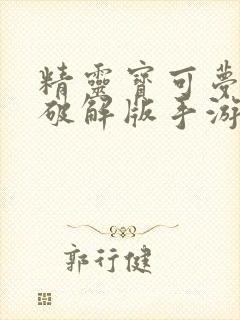 精靈寶可夢
破解版手游
郭行健